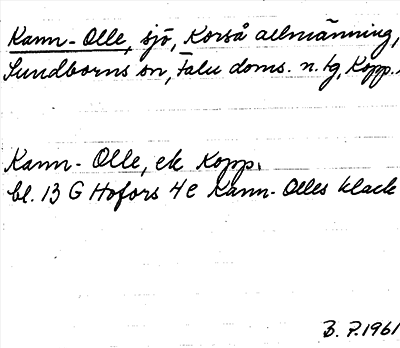 Kann-Olle, sjö, Korså allmänning,
Sundborns sn, Falu doms. n. tg, Kopp.
Kann-Olle, ek Kopp.
bl. 13 G Hofors 4e Kann-Olles klack
B. P. 1961